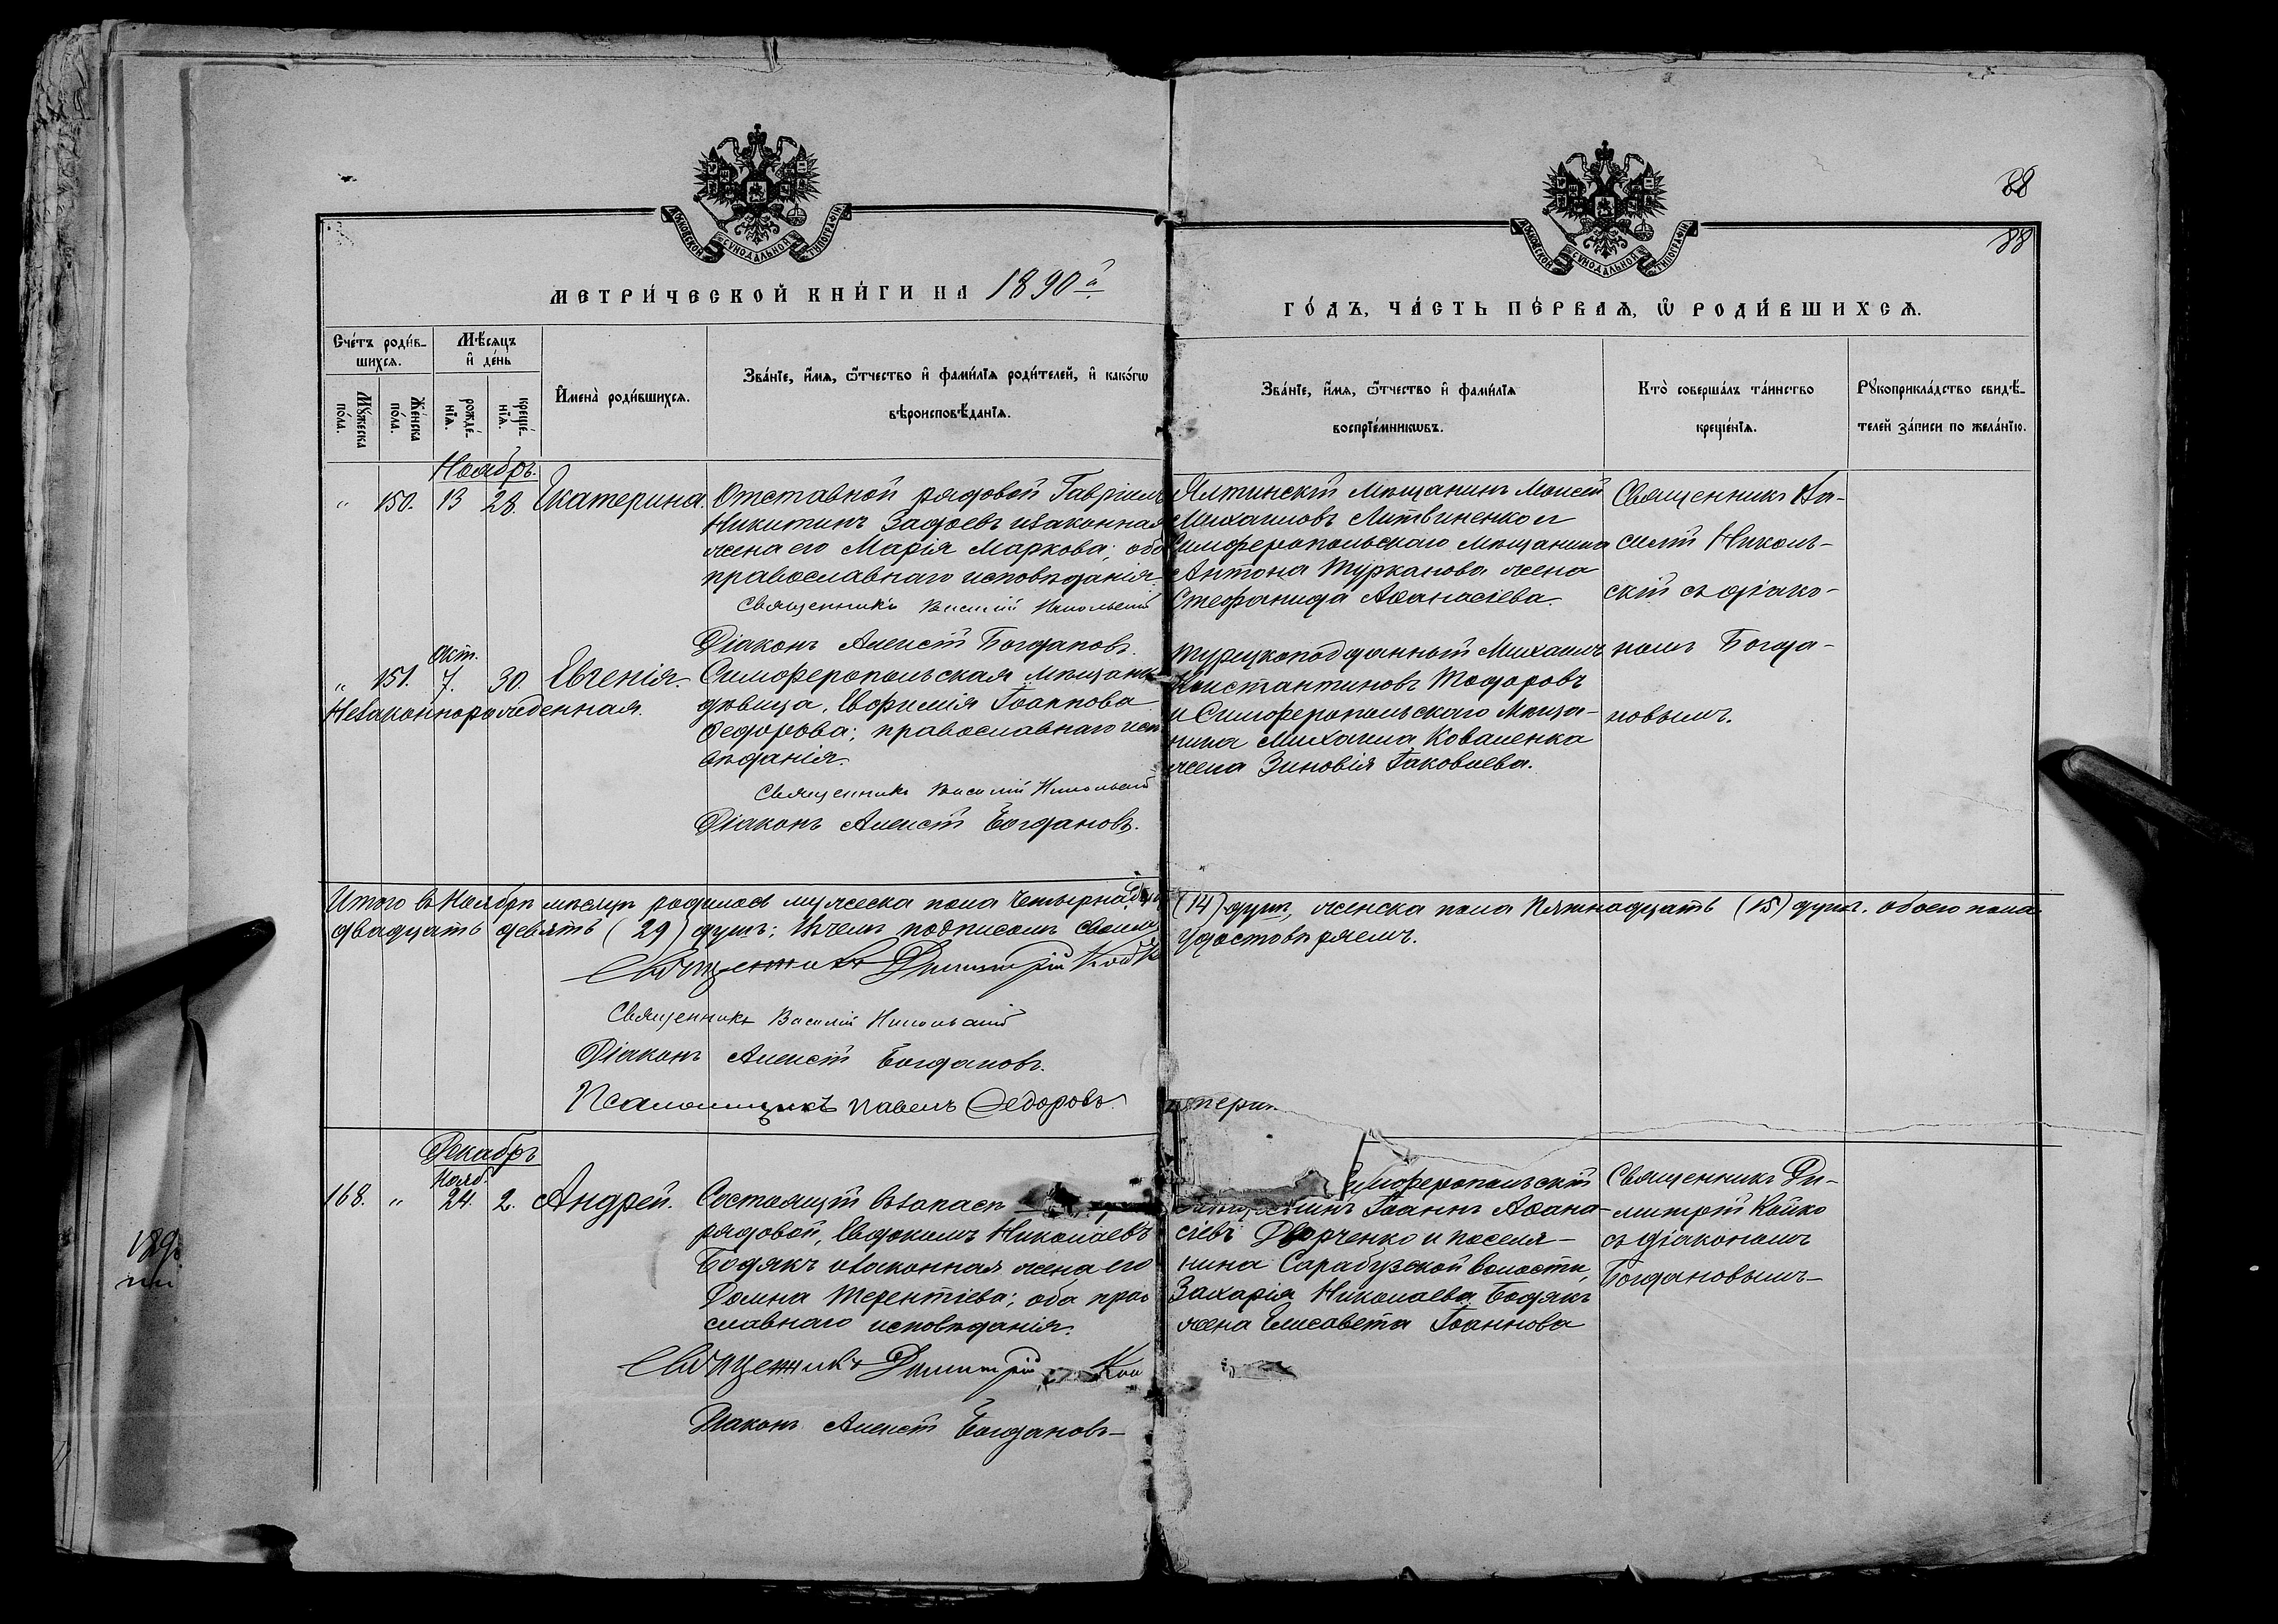 88
88
МОСКОВСКОЙ СѴНОДАЛЬНОЙ ТИПОГРАФІИ
МОСКОВСКОЙ СѴНОДАЛЬНОЙ ТИПОГРАФІИ
МЕТРИ́ЧЕСКОЙ КНИ́ГИ НА 1890й
ГО́ДЪ, ЧА́СТЬ ПЕ́РВАѦ, Ѽ РОДИ́ВШИХСѦ.
Сче́тъ роди́в-
шихсѧ.
Мѣ́сѧцъ
и҆ де́нь
Мꙋ́жеска
по́ла.
Же́нска
по́ла.
рожде́-
нїѧ.
креще́-
нїѧ.
И҆мена̀ роди́вшихсѧ.
Зва́нїе, и҆́мѧ, ѻ҆́тчество и҆ фами́лїѧ роди́телей, и҆ како́гѡ
вѣроисповѣ́данїѧ.
Зва́нїе, и҆́мѧ, ѻ҆́тчество и҆ фами́лїѧ
воспрїе́мникѡвъ.
Кто̀ соверша́лъ та́инство
креще́нїѧ.
Рꙋкоприкла́дство свидѣ́-
телей за́писи по жела́нїю.
Ноябрь.
" 150. 13 28. Екатерина.
Отставной рядовой Гавріилъ
Никитинъ Задоевъ и законная
жена его Марія Маркова; оба
православнаго исповѣданія.
Священникъ Василій Никольскій
Діаконъ Алексій Богдановъ.
Ялтинскій мѣщанинъ Моисей
Михаиловъ Литвиненко и
Симферопольскаго мѣщанина
Антона Турканова жена
Стефанида Аѳанасіева.
Священникъ Ва-
силій Николь-
скій съ діако-
номъ Богда-
новымъ.
Окт.
" 151. 7. 30. Евгенія.
Незаконнорожденная.
Симферопольская мѣщанка
дѣвица, Евфимія Іоаннова
Ѳедорова; православнаго испо
вѣданія.
Священникъ Василій Никольскій
Діаконъ Алексій Богдановъ.
Турецкоподданный Михаилъ
Константиновъ Тодоровъ
и Симферопольскаго мѣща-
нина Михаила Коваленка
жена Зиновія Іаковлева.
Итого въ Ноябрѣ мѣсяцѣ родилось мужеска пола четырнадцать (14) душъ, женска пола пятнадцать (15) душъ. обоего пола
двадцать девять (29) душъ; въ чемъ подписомъ своимъ удостовѣряемъ.
Священникъ Димитрій Койк
Священникъ Василій Никольскій
Діаконъ Алексій Богдановъ.
Псаломщикъ Павелъ Ѳедоровъ.
Декабрь
Нояб.
168. " 24. 2. Андрей.
Состоящій въ запасѣ
рядовой, Евдокимъ Николаевъ
Бодякъ и законная жена его
Домна Терентіева; оба прав
славнаго исповѣданія.
Священникъ Димитрій Кой
Діаконъ Алексій Богдановъ
Симферопольскій
мѣщанинъ Іоаннъ Аѳана-
сіевъ Дворченко и поселя-
нина Сарабузской волости,
Захарія Николаева Бодякъ
жена Елисавета Іоаннова
Священникъ Ди-
митрій Койко
съ діакономъ
Богдановымъ